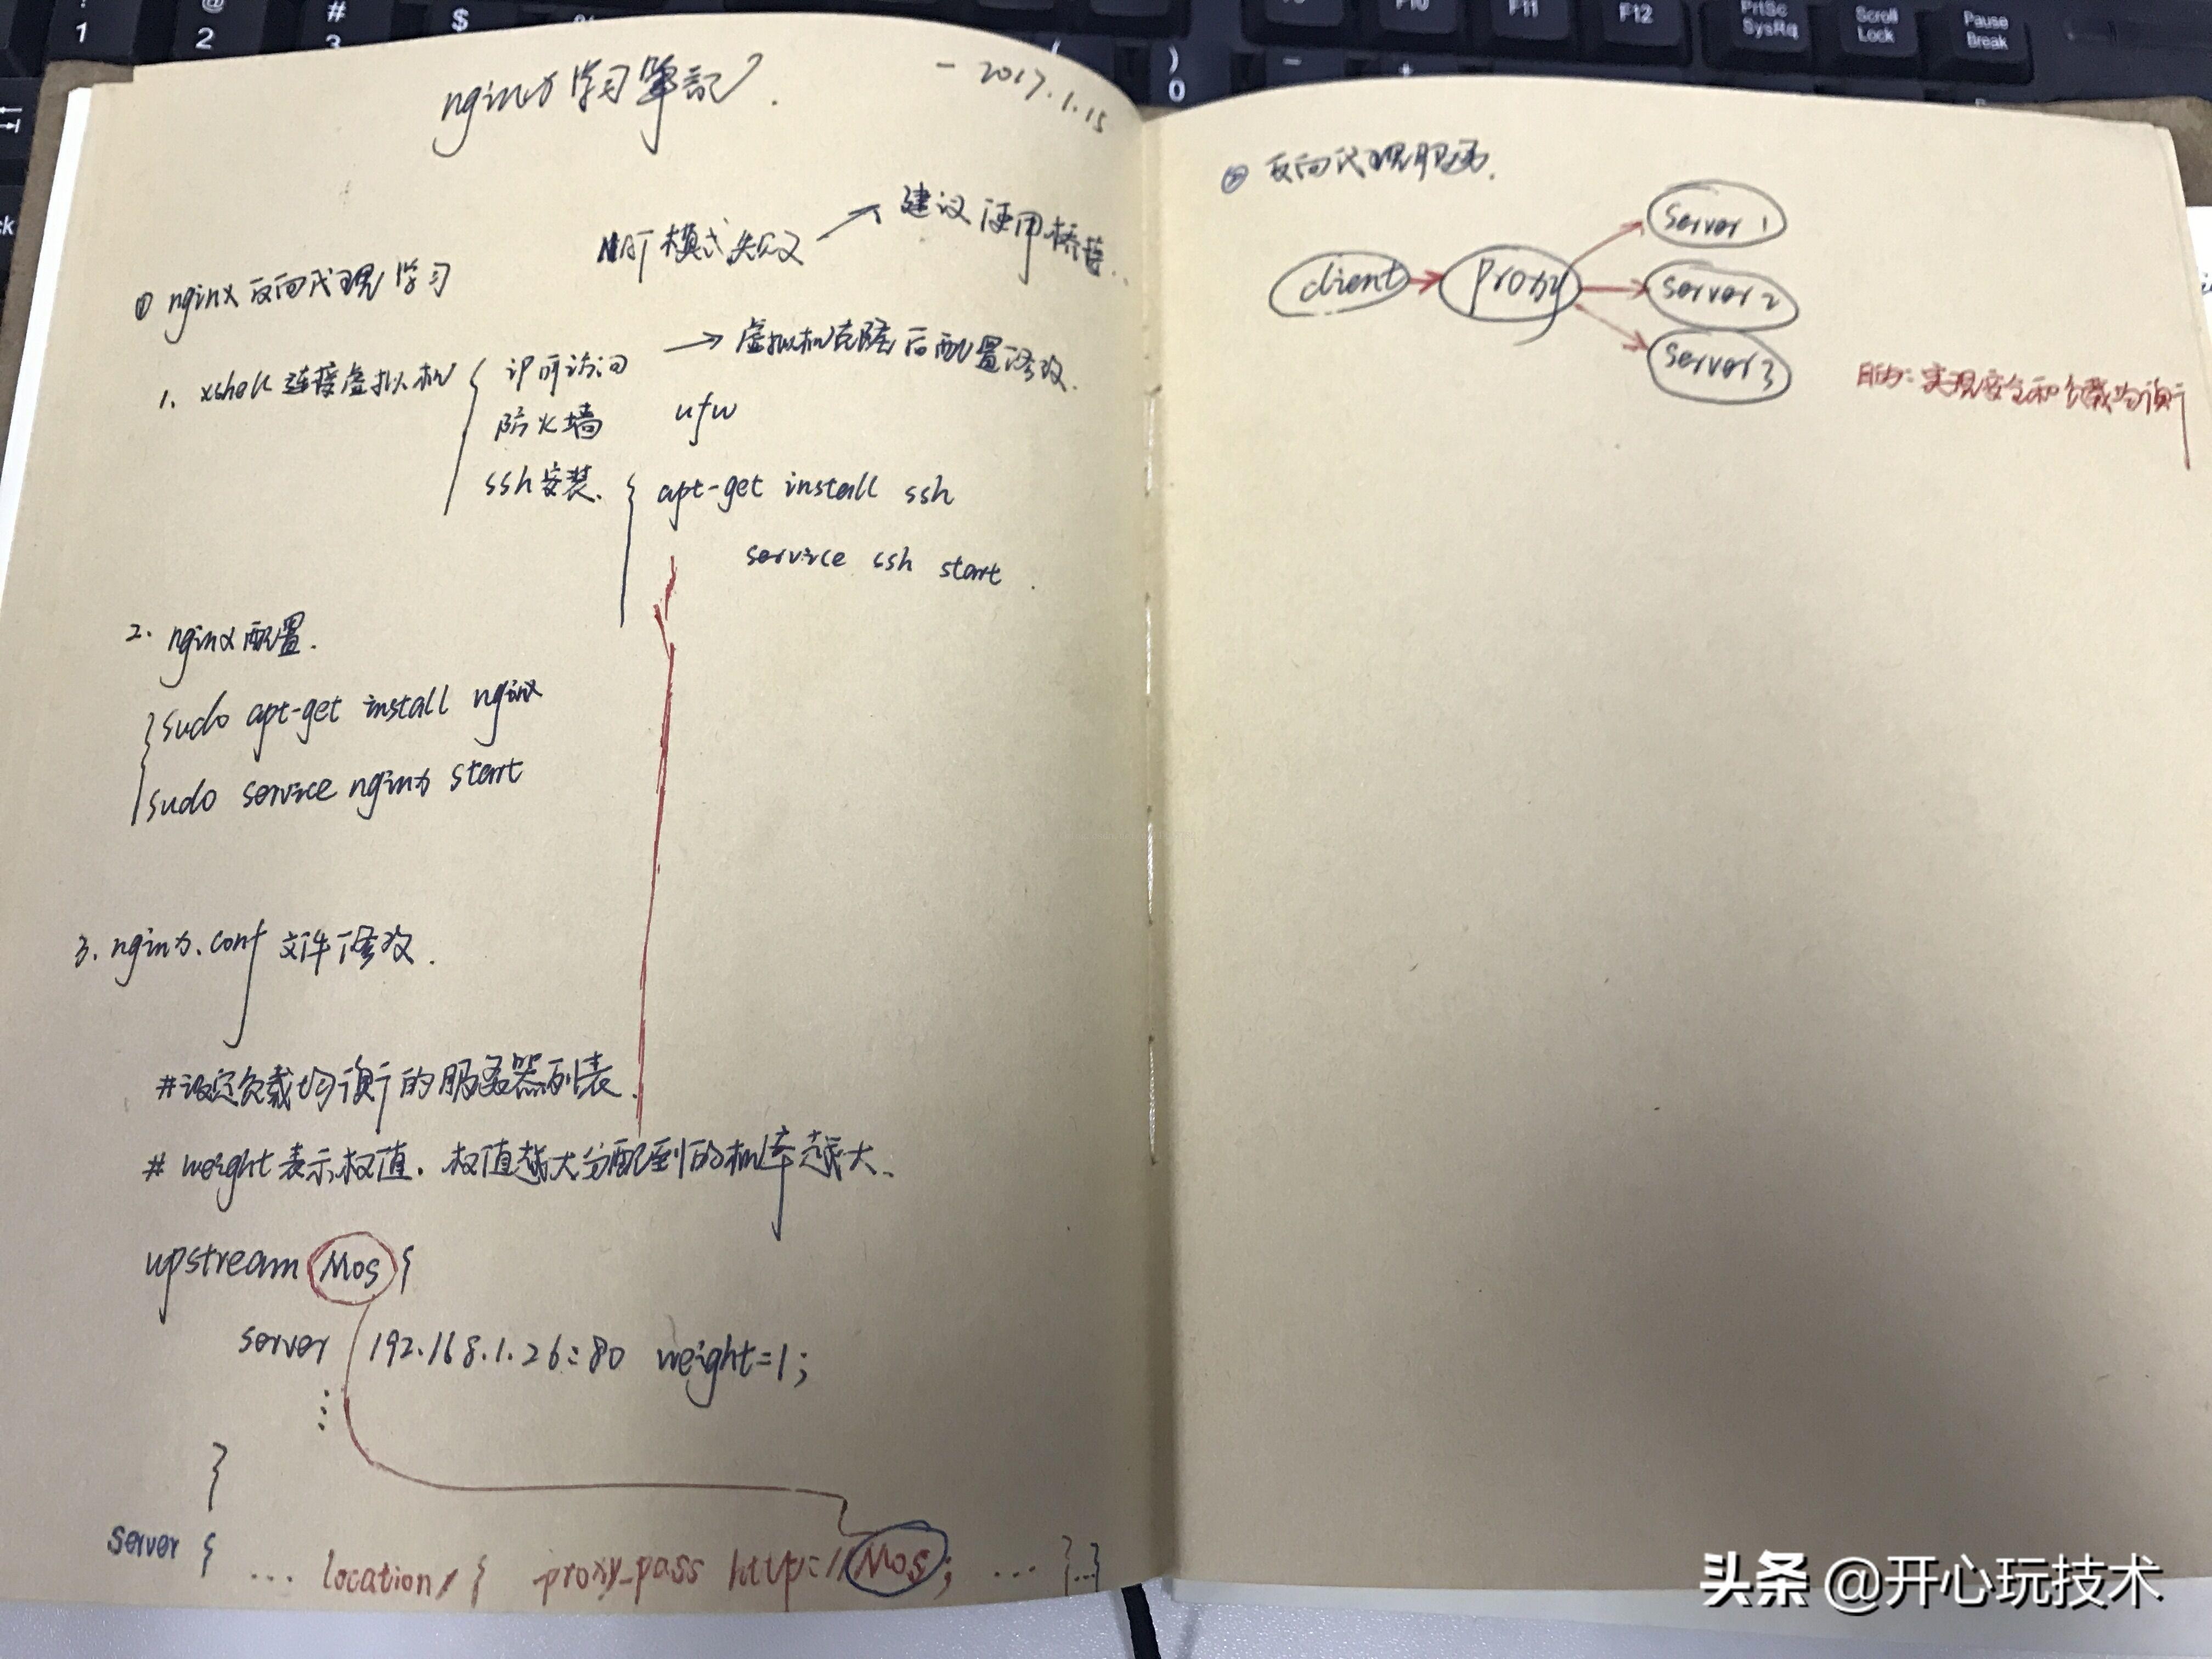 nginx学习笔记.
- 2017.1.15
NAT模式失效 → 建议使用桥接.
① nginx反向代理学习
1. xshell连接虚拟机 { 许可访问 → 虚拟机克隆后配置修改.
防火墙 ufw
ssh安装. { apt-get install ssh
service ssh start.
2. nginx配置.
{ sudo apt-get install nginx
sudo service nginx start
3. nginx.conf 文件修改.
#设定负载均衡的服务器列表.
# weight表示权值.权值越大分配到的概率越大.
upstream Mos {
server 192.168.1.26:80 weight=1;
⋮
}
server { ... location / { proxy_pass http://Mos; ... }...}
② 反向代理服务.
client → proxy → server 1
server 2
server 3
目的:实现安全和负载均衡
! 1 @ 2 # 3 $ ) 0
F10 F11 F12 PrtSc SysRq Scroll Lock Pause Break
头条 @开心玩技术